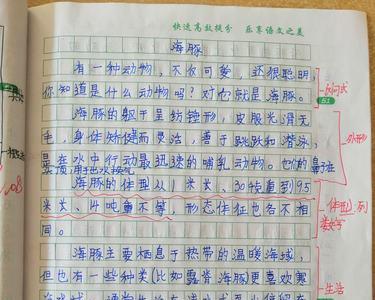 快速高效提分 乐享语文之美
海豚
有一种动物，不仅可爱，还很聪明，
你知道是什么动物吗？对它就是海豚。
设问式
51
海豚的躯干呈纺锤形，皮肤光滑无
毛，身体矫健而灵活，善于跳跃和潜泳，
外形
是在水中行动最迅速的哺乳动物。它们的鼻子在
头顶用把水换气
海豚的体型从1米长、30千克重到9.5
米长、14吨重不等，形态体征也各不相
体型：列
数字
同。
海豚主要栖息于热带的温暖海域，
但也有一些种类(比如露脊海豚)更喜欢寒
生活